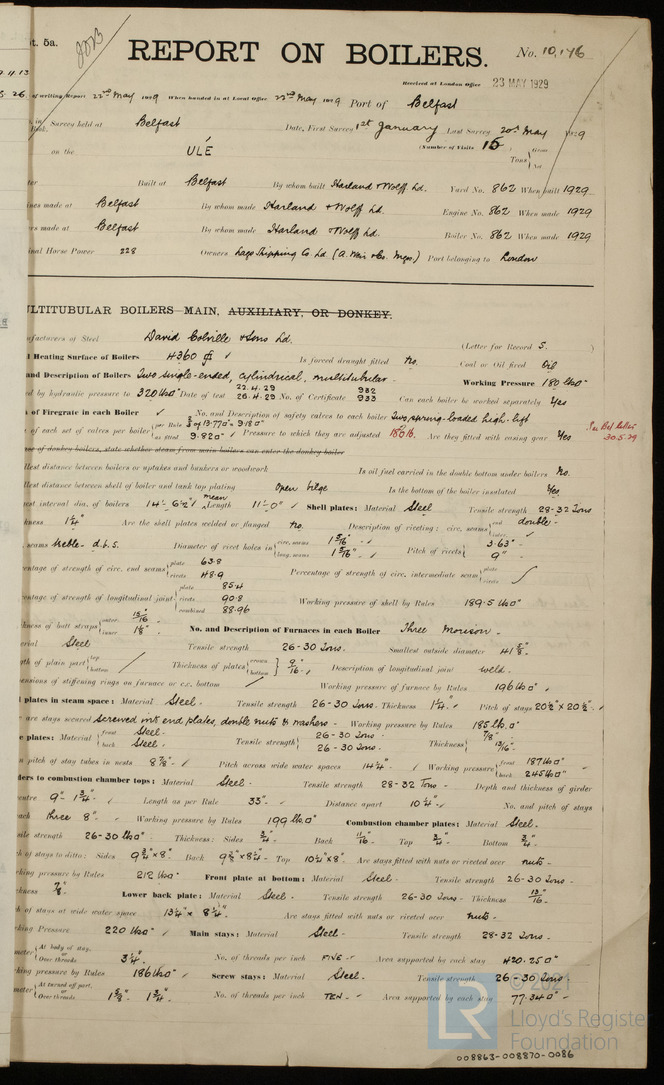 t. 5a.
REPORT ON BOILERS.
No. 10,176
Received at London Office 23 MAY 1929
of writing Report 22nd May 1929 When handed in at Local Office 22nd May 1929 Port of Belfast
Survey held at Belfast Date, First Survey 1st January Last Survey 20th May 1929
on the ULÉ (Number of Visits 15
Tons { Gross Net
Built at Belfast By whom built Harland & Wolff Ld. Yard No. 862 When built 1929
nes made at Belfast By whom made Harland & Wolff Ld. Engine No. 862 When made 1929
rs made at Belfast By whom made Harland & Wolff Ld. Boiler No. 862 When made 1929
nal Horse Power 228 Owners Lago Shipping Co. Ld (A. Weir & Co. Mgrs.) Port belonging to London
ULTITUBULAR BOILERS MAIN, AUXILIARY, OR DONKEY.
nufacturers of Steel David Colville & Sons Ld. (Letter for Record S. )
l Heating Surface of Boilers 4360 ✓ Is forced draught fitted No. Coal or Oil fired Oil
and Description of Boilers Two single-ended, cylindrical, multitubular. Working Pressure 180 lbs
ed by hydraulic pressure to 320 lbs Date of test 22.4.29 26.4.29 No. of Certificate 932 933 Can each boiler be worked separately Yes
of Firegrate in each Boiler ✓ No. and Description of safety valves to each boiler Two, spring-loaded high-lift
of each set of valves per boiler { per Rule as fitted 9.820 ✓ Pressure to which they are adjusted 180 lb. Are they fitted with easing gear Yes
30.5.29
se of donkey boilers, state whether steam from main boilers can enter the donkey boiler
llest distance between boilers or uptakes and bunkers or woodwork Is oil fuel carried in the double bottom under boilers No.
llest distance between shell of boiler and tank top plating Open bilge Is the bottom of the boiler insulated Yes
est internal dia. of boilers 14'- 6½" ✓ mean Length 11'-0" ✓ Shell plates: Material Steel Tensile strength 28-32 Tons
kness 1¼" Are the shell plates welded or flanged No. Description of riveting: circ. seams { end double inter. ✓
seams treble- d.b.s. Diameter of rivet holes in { circ. seams 1 5/16" long. seams 1 5/16" Pitch of rivets { 3.63" 9"
entage of strength of circ. end seams { plate 63.8 rivets 48.9 Percentage of strength of circ. intermediate seam { plate rivets
entage of strength of longitudinal joint { plate 85.4 rivets 90.8 combined 88.96 Working pressure of shell by Rules 189.5 lbs
kness of butt straps { outer 15/16" inner 1⅛" No. and Description of Furnaces in each Boiler Three Morison -
erial Steel Tensile strength 26-30 Tons. Smallest outside diameter 41⅝"
gth of plain part { top bottom Thickness of plates { crown bottom } 9/16" Description of longitudinal joint weld.
ensions of stiffening rings on furnace or c.c. bottom Working pressure of furnace by Rules 196 lbs
l plates in steam space: Material Steel Tensile strength 26-30 Tons Thickness 1¼" ✓ Pitch of stays 20½" x 20½"
are stays secured Screwed into end plates, double nuts & washers - Working pressure by Rules 185 lbs
e plates: Material { front Steel back Steel - Tensile strength { 26-30 Tons 26-30 Tons Thickness { 7/8" 13/16"
n pitch of stay tubes in nests 8⅞" Pitch across wide water spaces 14¼" ✓ Working pressure { front 187 lbs back 245 lbs
ders to combustion chamber tops: Material Steel - Tensile strength 28-32 Tons - Depth and thickness of girder
entre 9" - 1¾" Length as per Rule 33" ✓ Distance apart 10¼" ✓ No. and pitch of stays
each Three 8" ✓ Working pressure by Rules 199 lbs Combustion chamber plates: Material Steel -
sile strength 26-30 lbs Thickness: Sides ¾" Back 11/16" Top ¾" Bottom ¾"
h of stays to ditto: Sides 9¾" x 8" Back 9½" x 8¼" Top 10¼" x 8" Are stays fitted with nuts or riveted over nuts -
king pressure by Rules 212 lbs Front plate at bottom: Material Steel - Tensile strength 26-30 Tons -
kness 7/8" Lower back plate: Material Steel - Tensile strength 26-30 Tons - Thickness 13/16"
h of stays at wide water space 13¼" x 8¼" Are stays fitted with nuts or riveted over nuts -
king Pressure 220 lbs Main stays: Material Steel - Tensile strength 28-32 Tons -
meter { At body of stay, or Over threads 3¼" No. of threads per inch FIVE - Area supported by each stay 420.25
king pressure by Rules 186 lbs Screw stays: Material Steel - Tensile strength 26-30 Tons -
meter { At turned off part, or Over threads 1⅝" 1¾" No. of threads per inch TEN - ✓ Area supported by each stay 77.340
LR
© 2021
Lloyd's Register
Foundation
008863-008870-0086